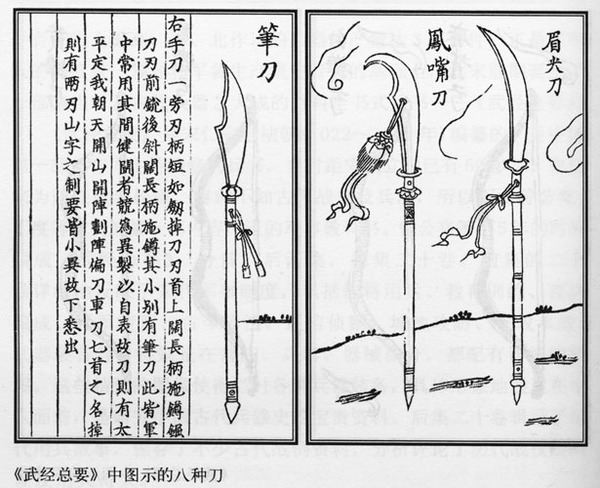 眉尖刀
鳳嘴刀
筆刀
右手刀一旁刃柄短如劒掉刀刃首上闊長柄施鐏
刀刃前銳後斜闊長柄施鐏其小別有筆刀此皆軍
中常用其間健鬭者競為異製以自表故刀則有太
平定我朝天開山開陣劃陣偏刀車刀匕首之名掉
則有兩刃山字之制要皆小異故不悉出
《武经总要》中图示的八种刀